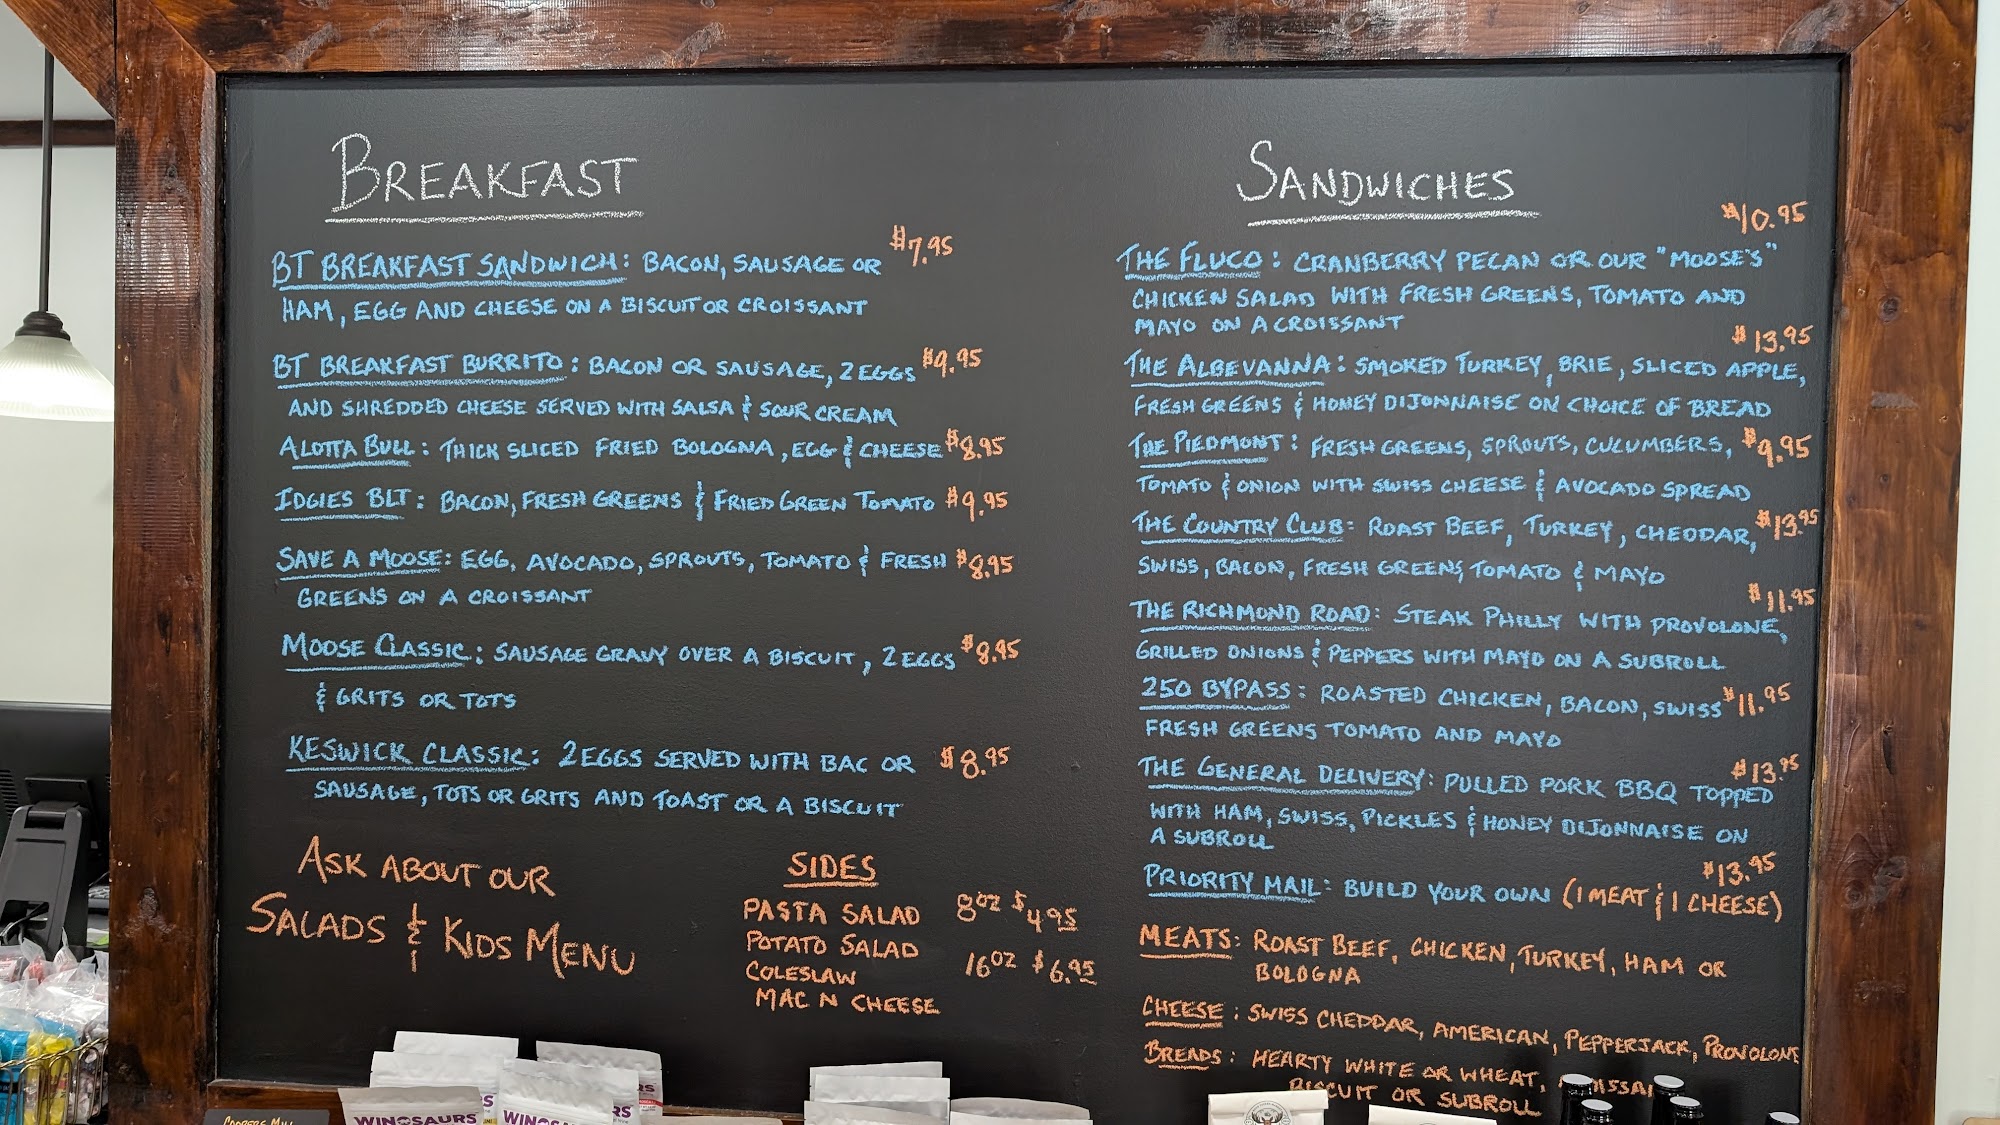 BREAKFAST
BT BREAKFAST SANDWICH: BACON, SAUSAGE OR $7.95
HAM, EGG AND CHEESE ON A BISCUIT OR CROISSANT
BT BREAKFAST BURRITO: BACON OR SAUSAGE, 2 EGGS $9.95
AND SHREDDED CHEESE SERVED WITH SALSA & SOUR CREAM
ALOTTA BULL: THICK SLICED FRIED BOLOGNA, EGG & CHEESE $8.95
IDGIES BLT: BACON, FRESH GREENS & FRIED GREEN TOMATO $9.95
SAVE A MOOSE: EGG, AVOCADO, SPROUTS, TOMATO & FRESH $8.95
GREENS ON A CROISSANT
MOOSE CLASSIC: SAUSAGE GRAVY OVER A BISCUIT, 2 EGGS $8.95
& GRITS OR TOTS
KESWICK CLASSIC: 2 EGGS SERVED WITH BAC OR $8.95
SAUSAGE, TOTS OR GRITS AND TOAST OR A BISCUIT
ASK ABOUT OUR
SALADS & KIDS MENU
SIDES
PASTA SALAD 8OZ $4.95
POTATO SALAD
COLESLAW 16OZ $6.95
MAC N CHEESE
SANDWICHES
$10.95
THE FLUCO: CRANBERRY PECAN OR OUR "MOOSE'S"
CHICKEN SALAD WITH FRESH GREENS, TOMATO AND
MAYO ON A CROISSANT
$13.95
THE ALBEVANNA: SMOKED TURKEY, BRIE, SLICED APPLE,
FRESH GREENS & HONEY DIJONNAISE ON CHOICE OF BREAD
THE PIEDMONT: FRESH GREENS, SPROUTS, CUCUMBERS, $9.95
TOMATO & ONION WITH SWISS CHEESE & AVOCADO SPREAD
THE COUNTRY CLUB: ROAST BEEF, TURKEY, CHEDDAR, $13.95
SWISS, BACON, FRESH GREENS, TOMATO & MAYO
$11.95
THE RICHMOND ROAD: STEAK PHILLY WITH PROVOLONE,
GRILLED ONIONS & PEPPERS WITH MAYO ON A SUBROLL
250 BYPASS: ROASTED CHICKEN, BACON, SWISS $11.95
FRESH GREENS TOMATO AND MAYO
$13.95
THE GENERAL DELIVERY: PULLED PORK BBQ TOPPED
WITH HAM, SWISS, PICKLES & HONEY DIJONNAISE ON
A SUBROLL
$13.95
PRIORITY MAIL: BUILD YOUR OWN (1 MEAT & 1 CHEESE)
MEATS: ROAST BEEF, CHICKEN, TURKEY, HAM OR
BOLOGNA
CHEESE: SWISS CHEDDAR, AMERICAN, PEPPERJACK, PROVOLONE
BREADS: HEARTY WHITE OR WHEAT,
BISCUIT OR SUBROLL
WINOSAURS
WINOS
RS